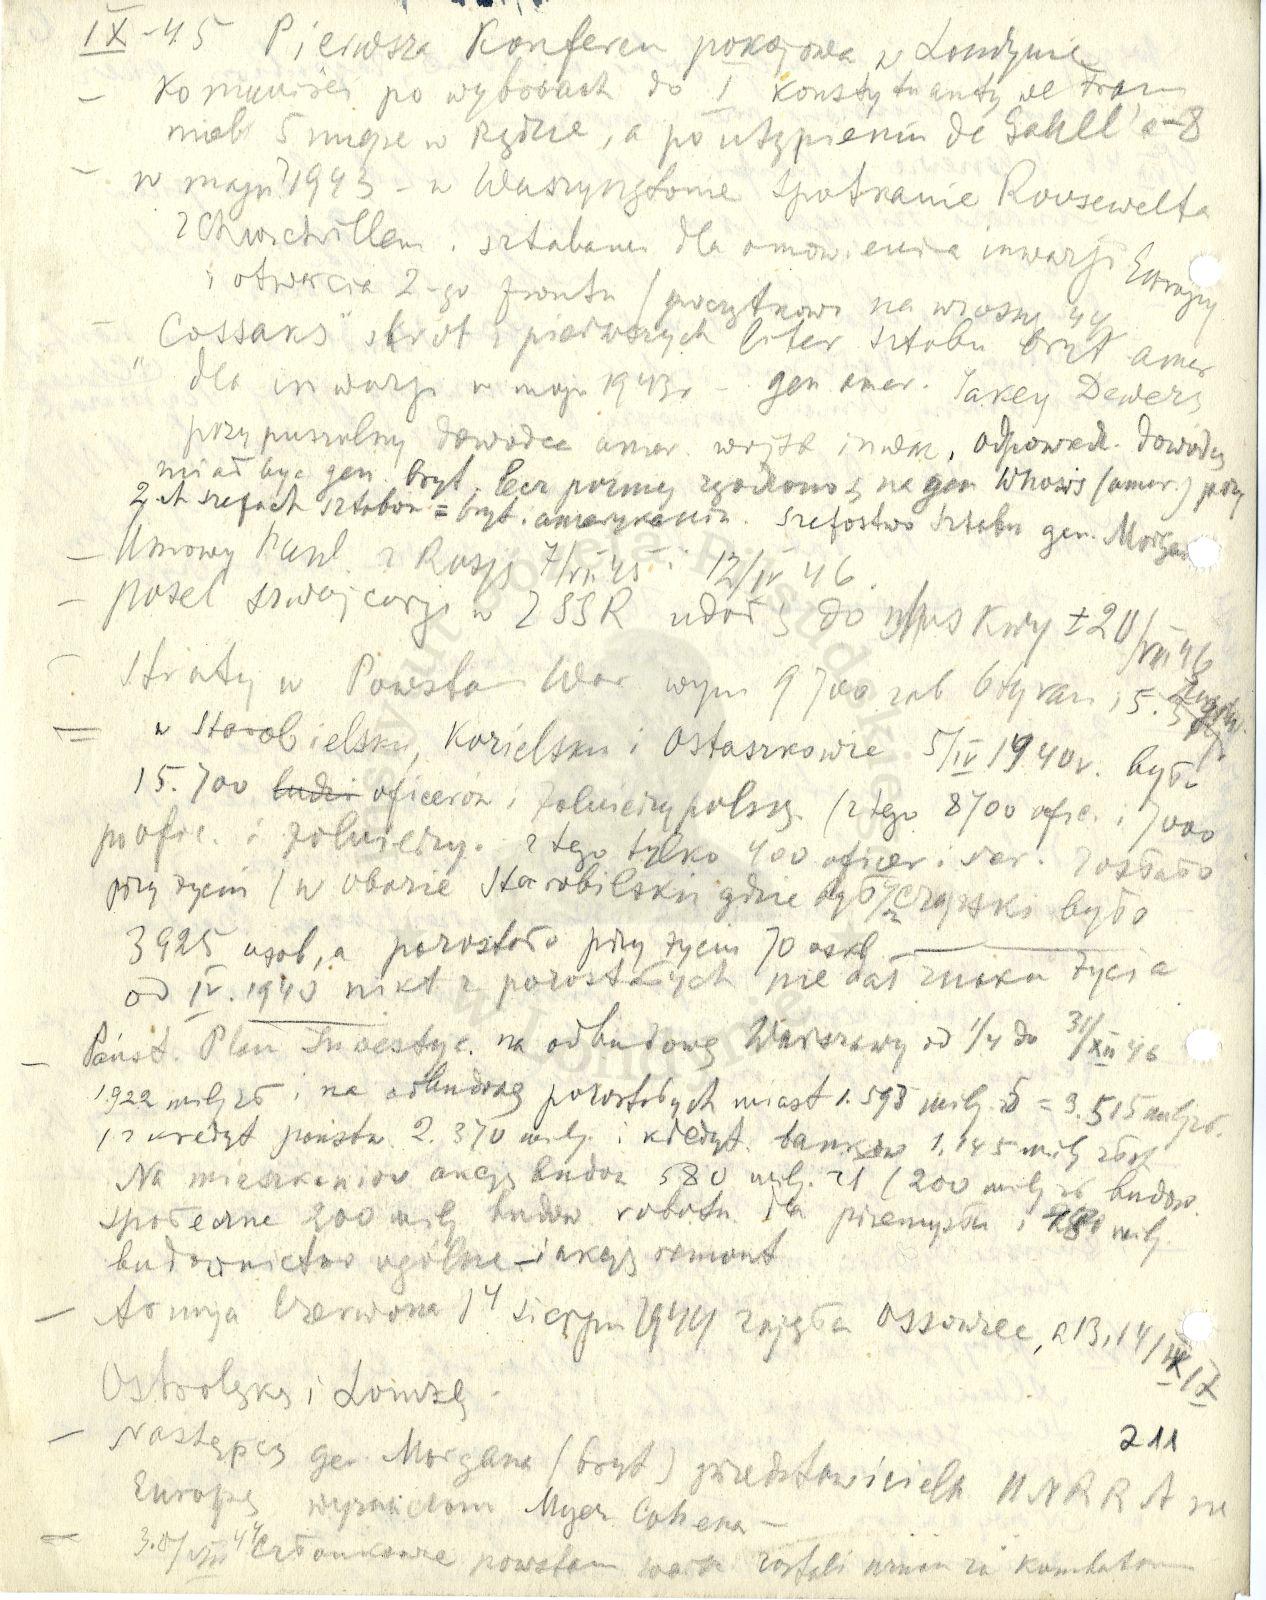 IX-45 Pierwsza Konferen pokojowa w Londynie
– Komuniści po wyborach do I konstytuanty we Fran
mieli 5 miejsc w Rządzie, a po ustąpieniu de Gaull'a – 8
– w maju 1943 – w Waszyngtonie spotkanie Roosewelta
z Churchillem i sztabami dla omówienia inwazji Europy
i otwarcia 2-go frontu (początkowo na wiosnę 44
– "Cossaks" skrót z pierwszych liter sztabu bryt amer
dla inwazji w maju 1943r – gen amer. Jakey Dewers
przypuszczalny dowódca amer. wojsk inwaz, odpowied. dowódcą
miał być gen. bryt. lecz później zgodzono się na gen (amer.) przy
2-ch szefach sztabów = bryt. amerykańsk. szefostwo sztabu gen. Morgan
– Umowy handl. z Rosją 7/VII 45 i 12/IV 46.
– poseł szwajcarji w ZSSR udał się do Moskwy ±20/VIII 46
– Straty w Powstan War wyn 9700 zab 6 tys ran i 5.
= w Starobielsku, Kozielsku i Ostaszkowie 5/IV 1940r. było
15.700 ludzi oficerów i żołnierzy polsk. (z tego 8700 ofic. i 7000
pofic. i żołnierzy. z tego tylko 400 oficer i szer. zostało
przy życiu (w obozie Starobilsku gdzie był Czapski było
3925 osób, a pozostało przy życiu 70 osób
od IV. 1940 nikt z pozostałych nie dał znaku życia
– Państ. Plan Inwestyc. na odbudowę Warszawy od 1/4 do 31/XII 46
1.922 milj zł i na odbudowę pozostałych miast 1.593 milj. zł = 3.515 milj zł.
kredyt państw. 2.370 milj. i kredyt. banków 1.145 milj złot
Na mieszkaniow akcję budow 580 milj. zł (200 milj zł budow.
społeczne 200 milj budow. robotn. dla przemysłu i 180 milj.
budownictwo ogólne – i akcję remont
– Armja Czerwona 14 sierpn 1944 zajęła Ossowiec, a 13 i 14/IX
Ostrołękę i Łomżę.
– Następcą gen Morgana (bryt) przedstawiciela UNRRA na
Europę wyznaczono Myer Cohena –
= 30/VIII 44 Członkowie powstan warsz zostali uznani za kombatan
211